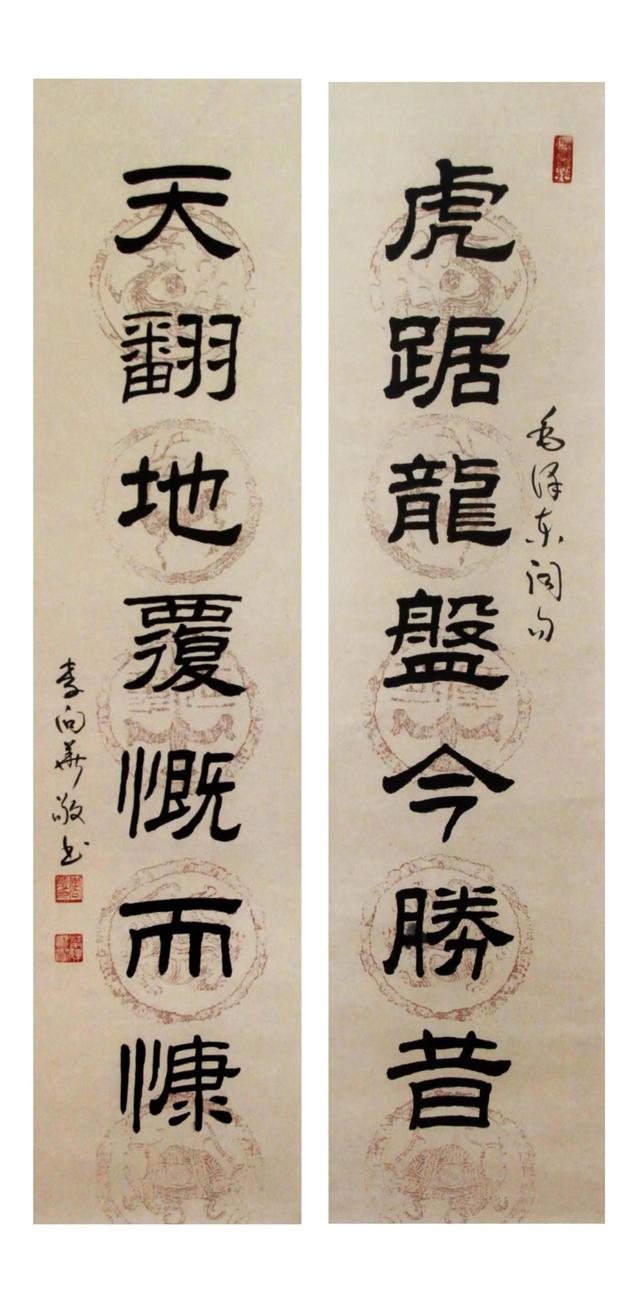 毛泽东词句
虎踞龍盤今勝昔
天翻地覆慨而慷
李向華敬书